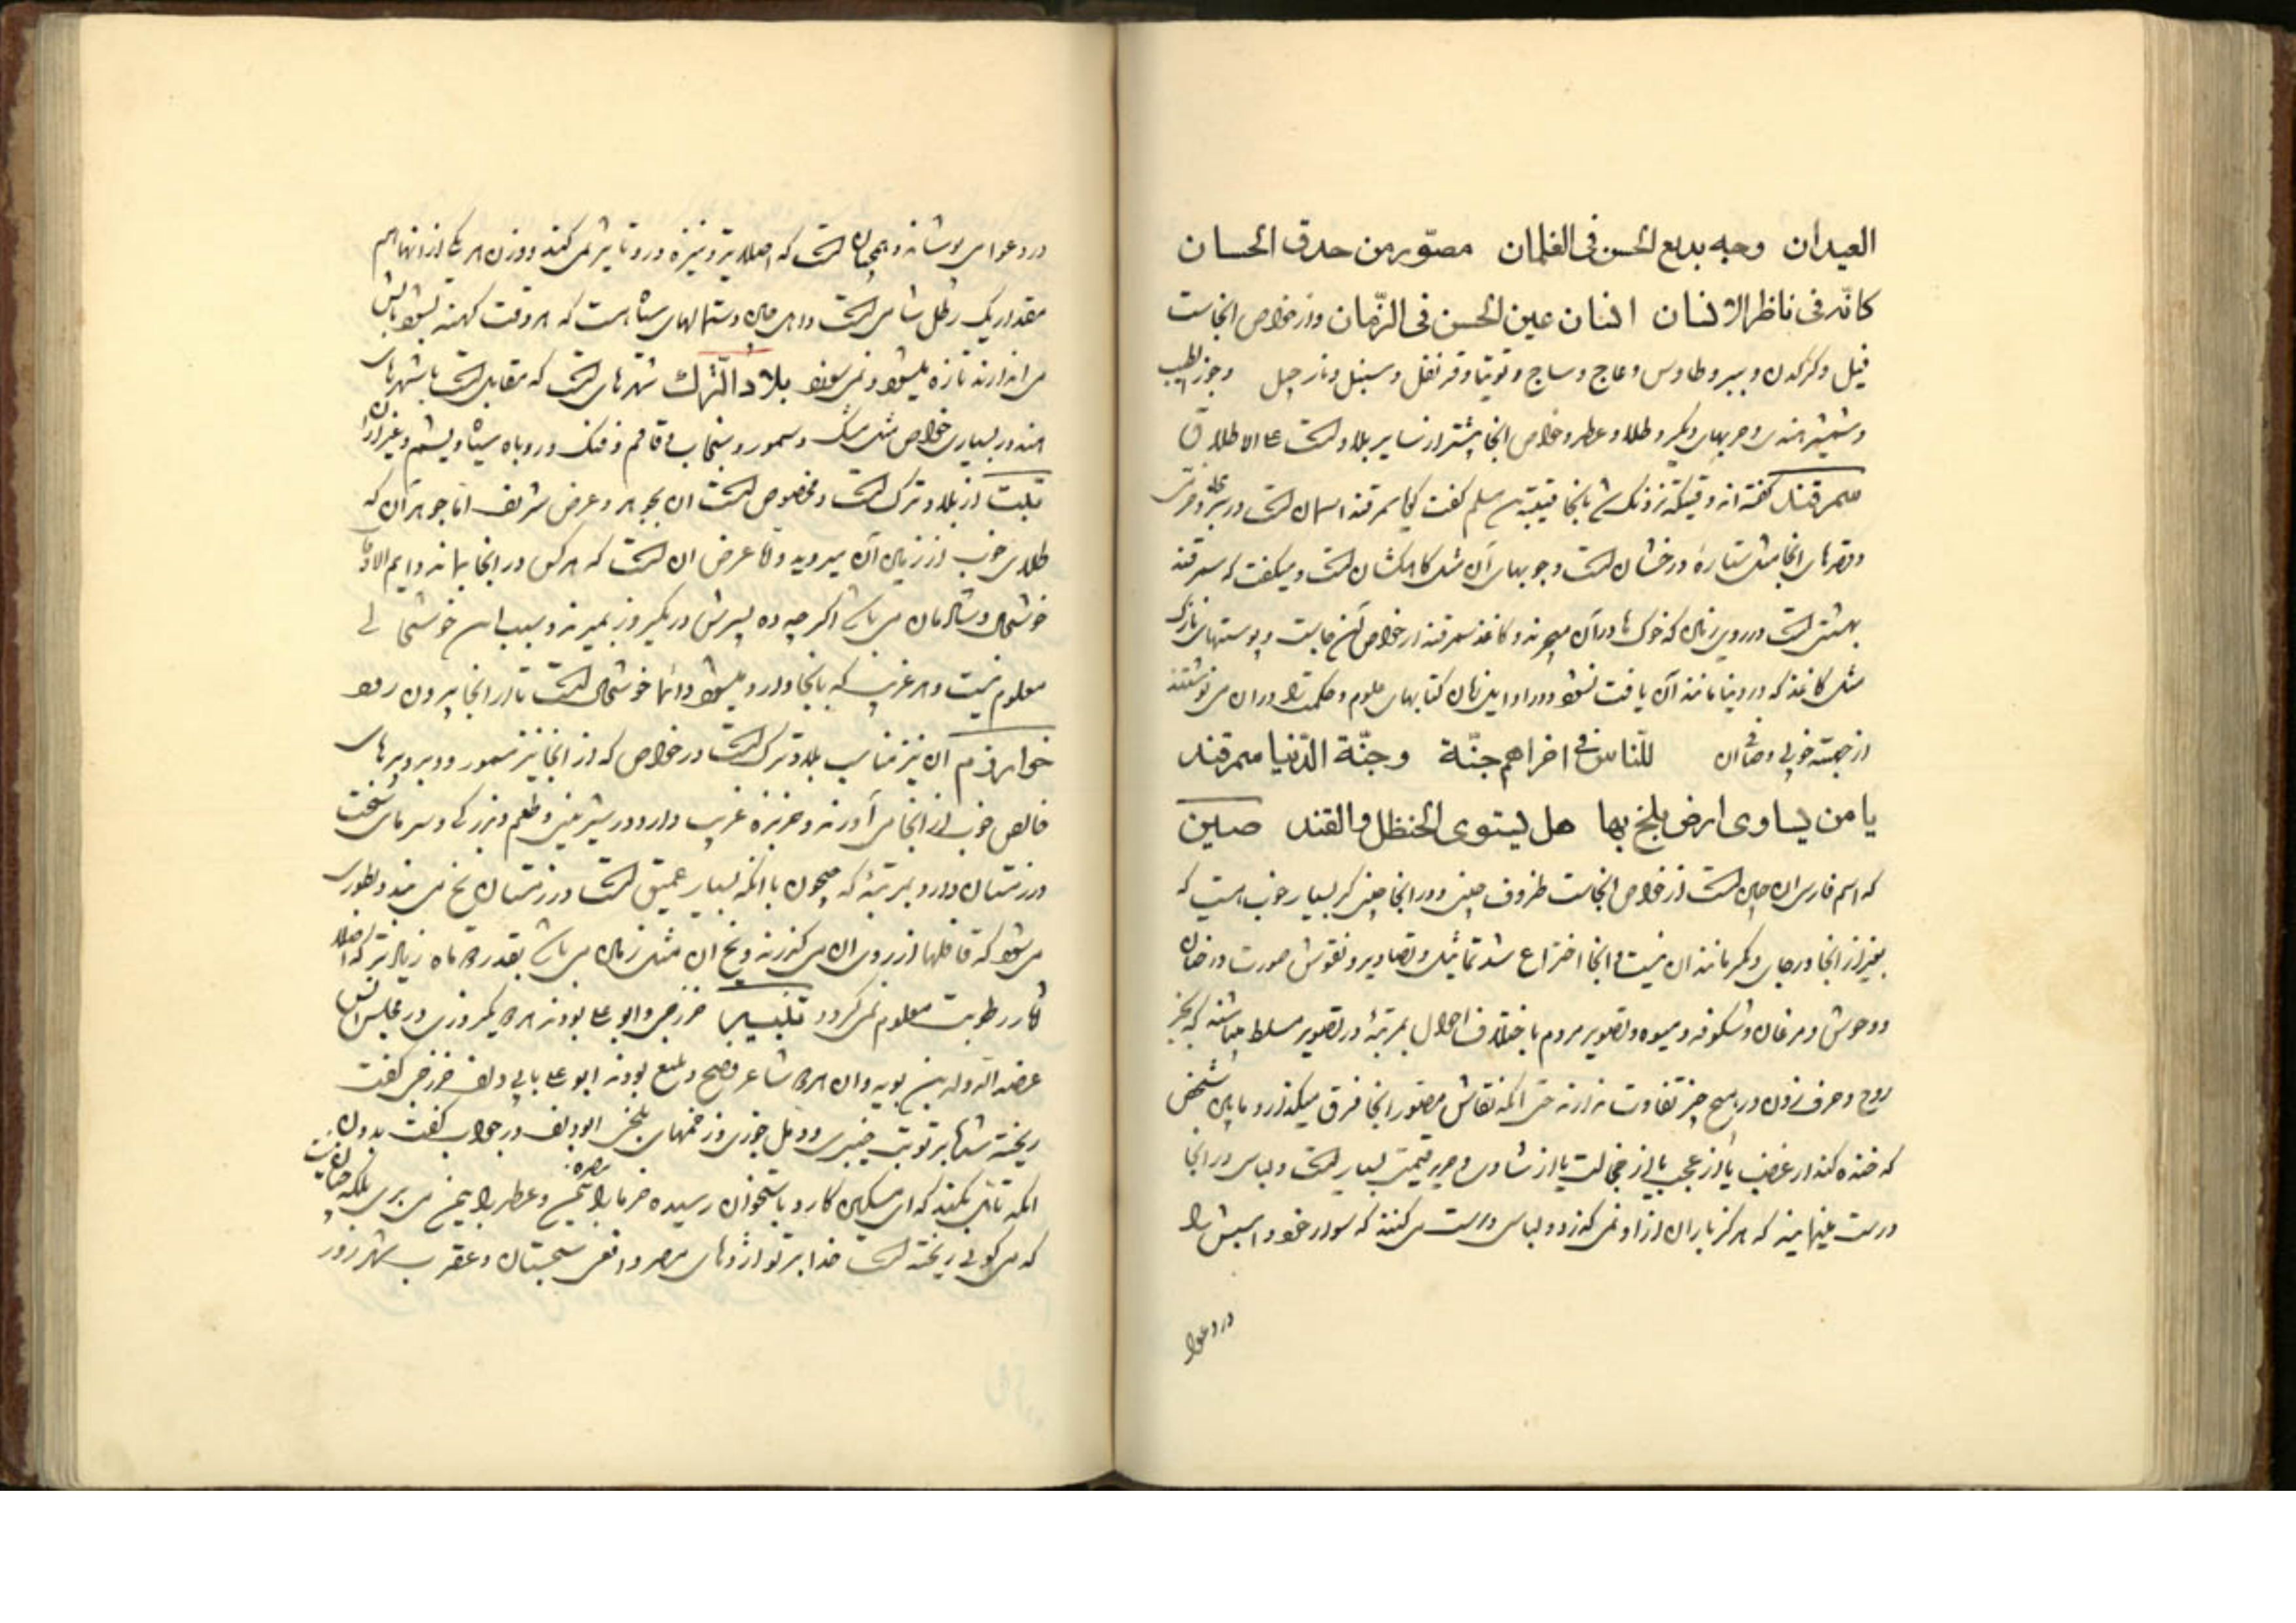 العیدان وجه بدیع الحسن فی الغلمان مصوّر من حدق الحسان
کانّه فی ناظر الانسان انسان عین الحسن فی الزّمان و از خواص انجاست
فیل و کرکدن و ببر و طاوس و عاج و ساج و توتیا و قرنفل و سنبل و نارجیل و جوز الطیب
و شمشیر هندی و حربهای دیگر و طلا و عطر و خواص انجا بیشتر از سایر بلاد است علی الاطلاق
سمرقند گفته‌اند وقتیکه نزدیک شد بانجا قتیبة بن مسلم گفت گویا سمرقند اسمان است در سبزی و
و قصرهای انجا مثل ستارهٔ درخشان است و جویهای آن مثل کاهکشان است و میگفت که سمرقند
بهشتی است در روی زمین که خوک‌ها در آن میچرند و کاغذ سمرقند از خواص آن جاست و پوستهای نازک
مثل کاغذ که در دنیا مانند آن یافت نشود و در اواین زمان کتابهای علوم و حکمت را در ان می نوشتند
از جهة خوبی و صافی ان للنّاس فی اخراهم جنّة و جنّة الدّنیا سمرقند
یا من یساوی ارض بلخ بها هل یستوی الحنظل و القند صین
که اسم فارسی ان چین است از خواص انجاست ظروف چینی و در انجا چینی گر بسیار خوب هست که
بغیر از انجا در جای دیگر مانند ان نیست و انجا اختراع شد تماثیل و تصاویر و نقوش صورت درختان
و وحوش و مرغان و شکوفه و میوه و تصویر مردم باختلاف احوال بمرتبهٔ در تصویر مسلط میباشند که بغیر
روح و حرف زدن در هیچ چیز تفاوت ندارند حتی انکه نقاش مصور انجا فرق میگذارد مابین شخص
که خنده کند از غضب یا از عجب یا از خجالت یا از شادی و حریر قیمت بسیار است و لباس در انجا
درست مینمایند که هرگز باران از او نمی گذرد و لباسی درست می کنند که سوار خود و اسبش را
در دعوا
در دعوا می پوشاند و همچنان است که اصلا تیر و نیزه در و تاثیر نمی کند و وزن هر یک از انها هم
مقدار یک رطل شامی است و اهل چین دستمالهای سیاه هست که هر وقت کهنه بشود باتش
می اندازند تازه میشود و نمی سوزد بلاد الترک شهرهای است که مقابل است با شهرهای
هند در بسیاری خواص مثل مشک و سمور و سنجاب و قاقم و فنک و روباه سیاه و یشم و غیر از ان
تبت از بلاد ترک است و مخصوص است ان بجوهر و عرض شریف اما جوهر آن که
طلای خوب از زمین آن میروید و اما عرض ان است که هر کس در انجا بماند دایم الاوقات
خوشحال و شادمان می باشد اگر چه ده پسرش در یکروز بمیرند و سبب این خوشحالی
معلوم نیست و هر غریب که بانجا وارد میشود دائما خوشحال است تا از انجا بیرون رود
خوارزم آن نیز مناسب بلاد ترک است در خواص که از انجا نیز سمور و وبرهای
خالص خوب از انجا می آورند و خربزه غریب دارد در شیرینی و طعم و بزرگی و سرمای سخت
در زمستان دارد بمرتبهٔ که جیحون با انکه بسیار عمیق است در زمستان یخ می بندد بطوری
می شود که قافلها از روی ان می گذرند و یخ ان مثل زمین می باشد بقدر دو ماه زیادتر که اصلا
اثار رطوبت معلوم نمی گردد خزرجی و ابو علی بودند هر دو یکروزی در مجلس انس
عضد الدوله بن بویه و ان هر دو شاعر فصیح و بلیغ بودند ابو علی بابی دلف خزرجی گفت
ریخته شد بر تو تب خیبری و دمل جزری و زخمهای بلخی ابو دلف در جواب گفت بدون
انکه تامل بکند که ای مسکین کارد باستخوان رسیده خرما را ببصره و عطر را بیمن می بری بلکه چنان نیست
که می گوئی ریخته است خدا بر تو اژدهای مصر و افعی سجستان و عقرب شهر زور